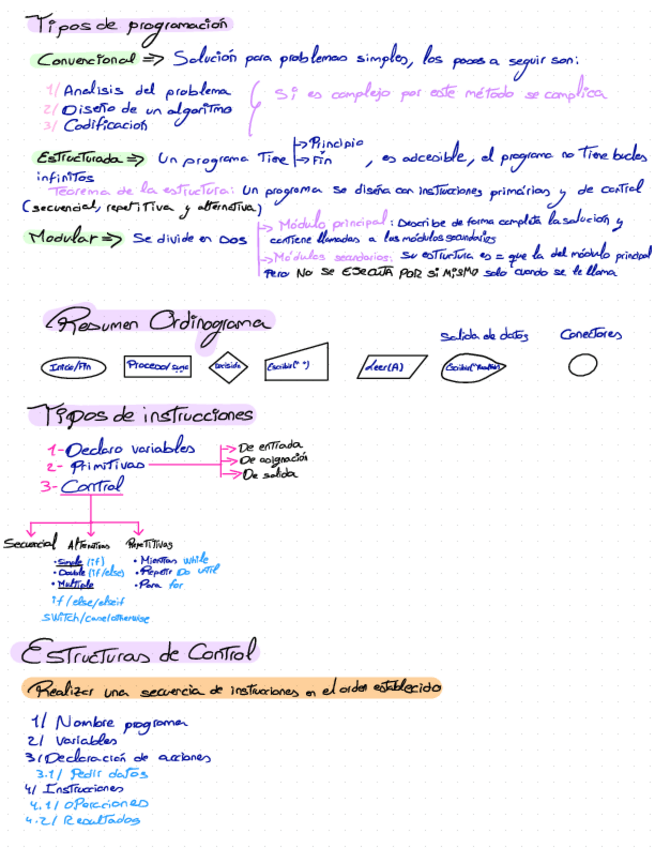 Tipos de programación
Convencional => Solución para problemas simples, los pasos a seguir son:
1/ Analisis del problema
2/ Diseño de un algoritmo
3/ Codificación
Si es complejo por este método se complica
Estructurada => Un programa Tiene Principio
Fin
, es adcesible, el programa no Tiene bucles
infinitos
Teorema de la estructura: Un programa se diseña con instrucciones primárias y de control
(secuencial, repetitiva y alternativa)
Modular => Se divide en Dos
Módulo principal: Describe de forma completa la solución y
contiene llamadas a los módulos secundarios
Módulos secundarios: Su estructura es = que la del módulo principal
Pero NO SE EJECUTA POR SI MISMO solo cuando se le llama
Resumen Ordinograma
Salida de datos
Conectores
Inicio/Fin
Proceso/
Decisión
Escribir(" ")
Leer(A)
Escribir("
Tipos de instrucciones
1- Declaro variables
2- Primitivas
3- Control
De entrada
De asignación
De salida
Secuencial
Alternativas
Repetitivas
• Simple (if)
• Double (if/else)
• Multiple
if/else/elseif
switch/case/otherwise
• Mientras While
• Repetir Do util
• Para for
Estructuras de Control
Realizar una secuencia de instrucciones en el orden establecido
1/ Nombre programa
2/ Variables
3/ Declaración de acciones
3.1/ Pedir datos
4/ Instrucciones
4.1/ Operaciones
4.2/ Resultados